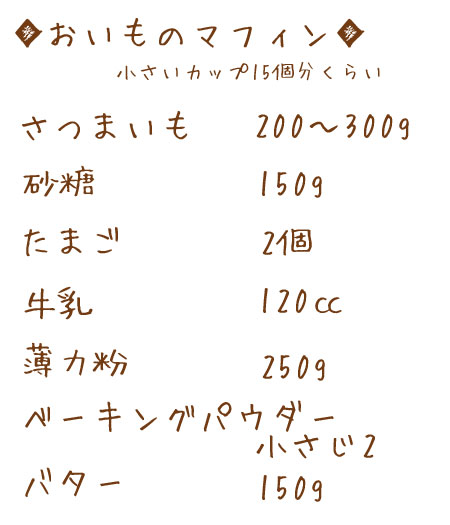 おいものマフィン
小さいカップ15個分くらい
さつまいも 200〜300g
砂糖 150g
たまご 2個
牛乳 120cc
薄力粉 250g
ベーキングパウダー
小さじ2
バター 150g